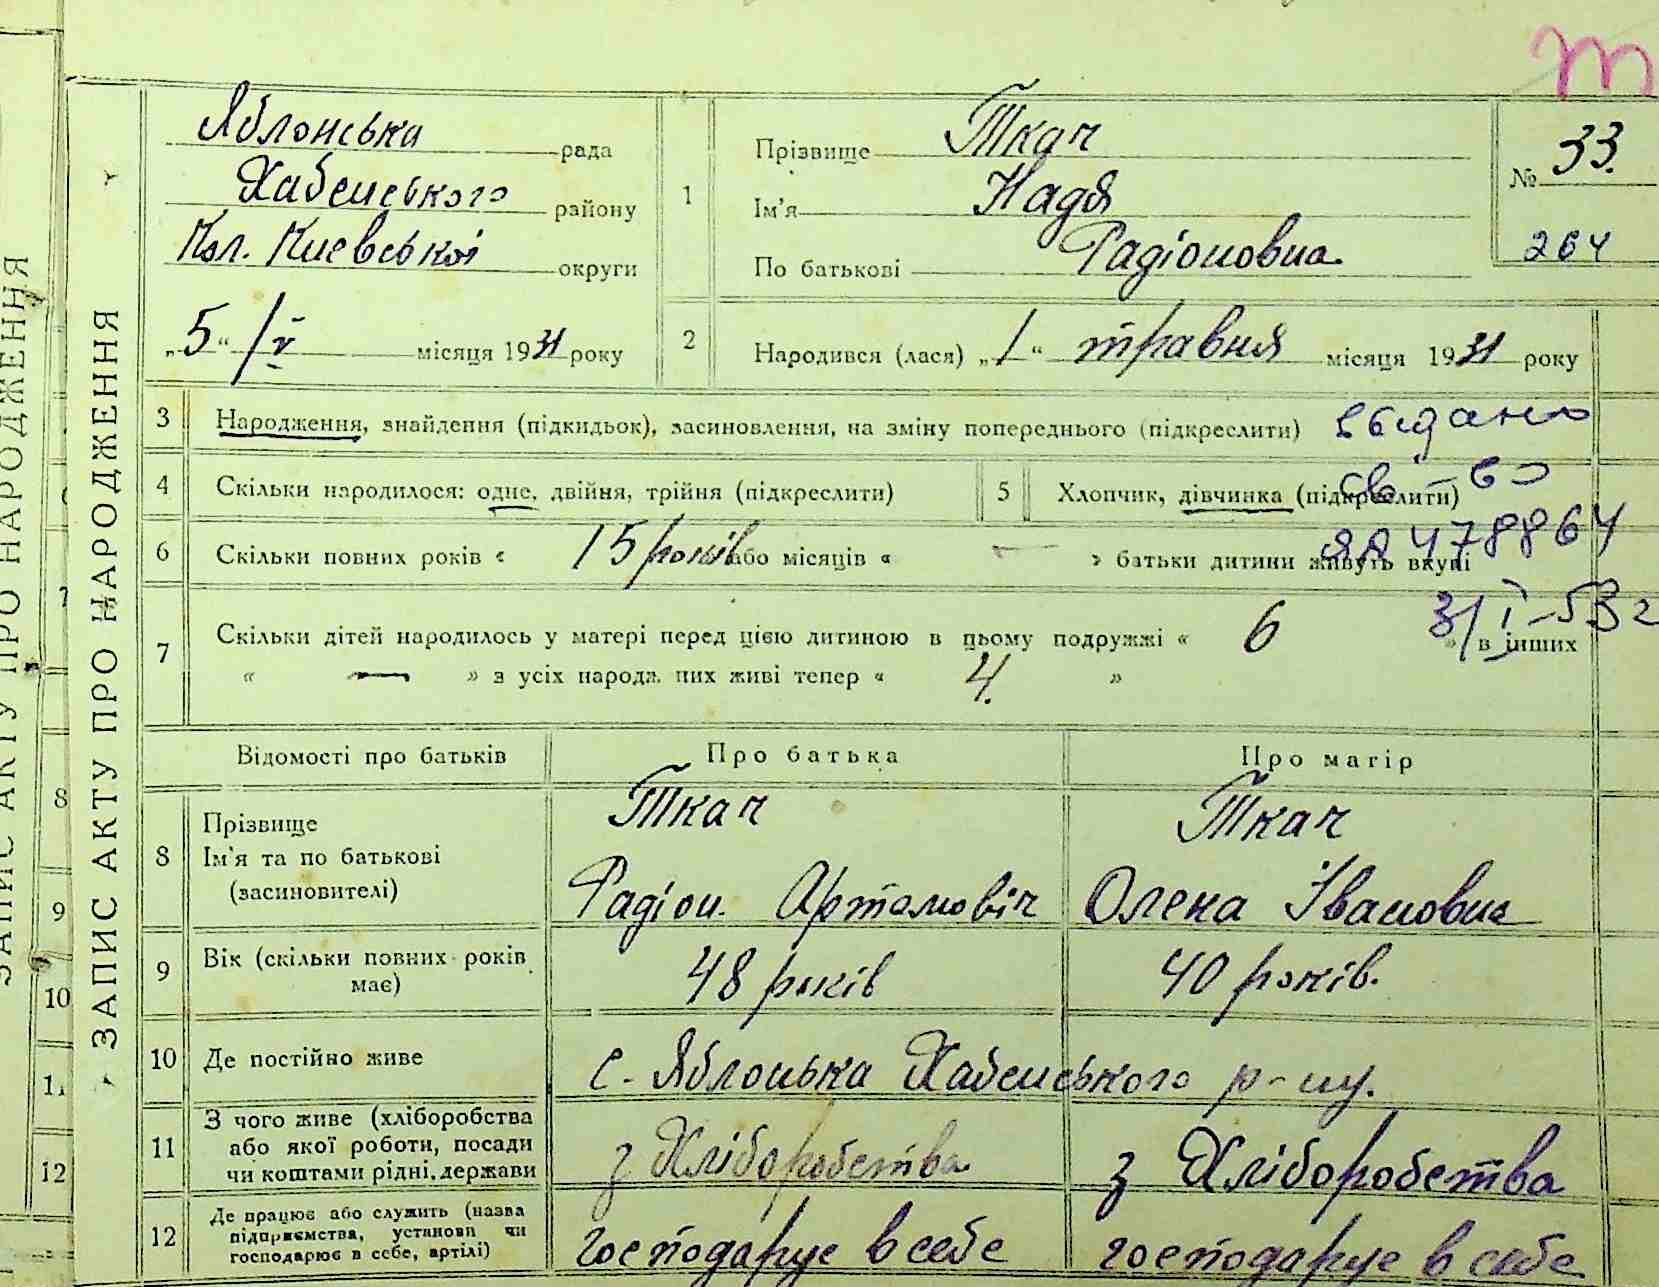 ЗАПИС АКТУ ПРО НАРОДЖЕННЯ
ЗАПИС АКТУ ПРО НАРОДЖЕННЯ
8
9
10
11
12
Яблонська рада
Хабенського району
Кол. Киевської округи
„5“ /V місяця 1931 року
1
Прізвище Ткач
Ім'я Надя
По батькові Радіоновна
№ 33.
264
2
Народився (лася) „1“ травня місяця 1931 року
3 Народження, знайдення (підкидьок), засиновлення, на зміну попереднього (підкреслити) выдано
4 Скільки народилося: одне, двійня, трійня (підкреслити) 5 Хлопчик, дівчинка (підкреслити) св-во
6 Скільки повних років « 15 років або місяців « — » батьки дитини живуть вкупі ЯА 478864
3/I-53 г
7 Скільки дітей народилось у матері перед цією дитиною в цьому подружжі « 6 » в інших
« — » з усіх народж них живі тепер « 4. »
Відомості про батьків Про батька Про матір
8 Прізвище Ткач Ткач
Ім'я та по батькові
(засиновителі) Радіон. Артемовіч Олена Івановна
9 Вік (скільки повних років має) 48 років 40 років.
10 Де постійно живе с. Яблонька Хабенського р-ну.
11 З чого живе (хліборобства
або якої роботи, посади
чи коштами рідні, держави з Хліборобства з Хліборобства
12 Де працює або служить (назва
підприємства, установи чи
господарює в себе, артілі) господарує в себе господарує в себе